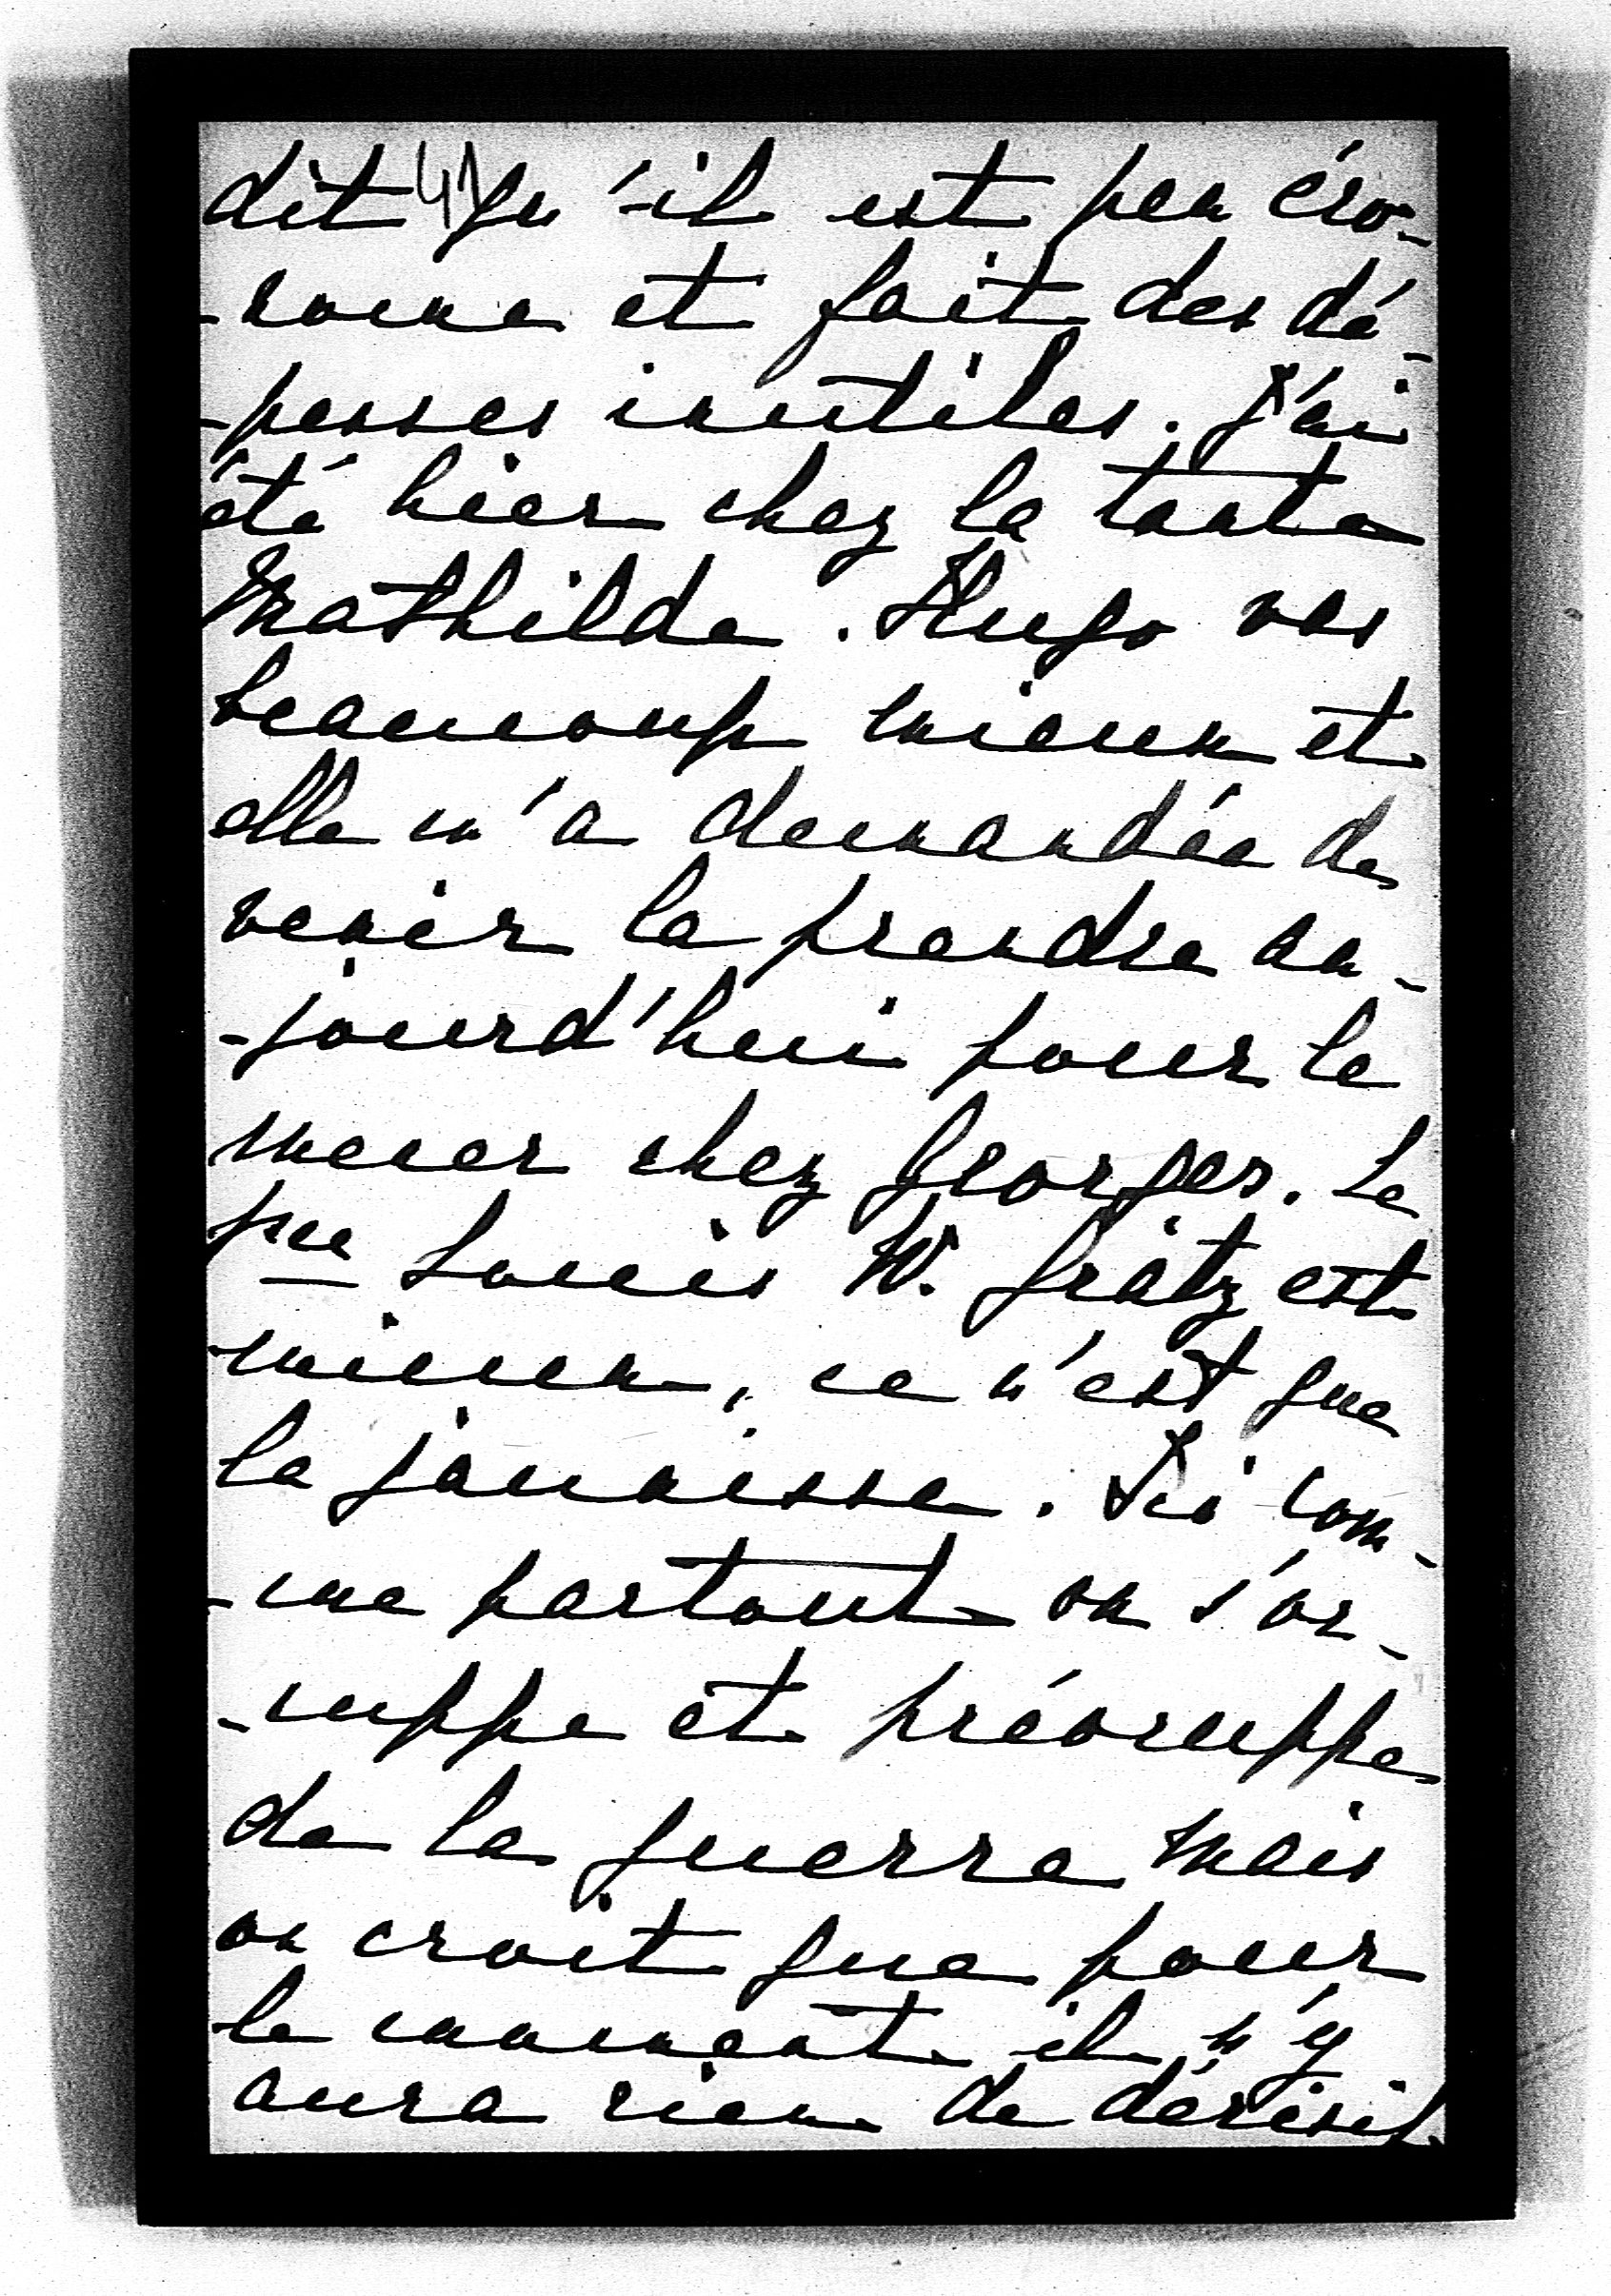 dit 41 qu'il est peu éco-
-nome et fait des dé-
-penses inutiles. J'ai
été hier chez la tante
Mathilde. Hugo vas
beaucoup mieux et
elle m'a demandée de
venir la prendre au-
-jourd'hui pour le
mener chez Georges. Le
pce Louis W. Grätz est
mieux, ce n'est que
la jaunisse. Ici com-
-me partout on s'oc-
-cuppe et préocuppe
de la guerre mais
on croit que pour
le moment il n'y
aura rien de décisif